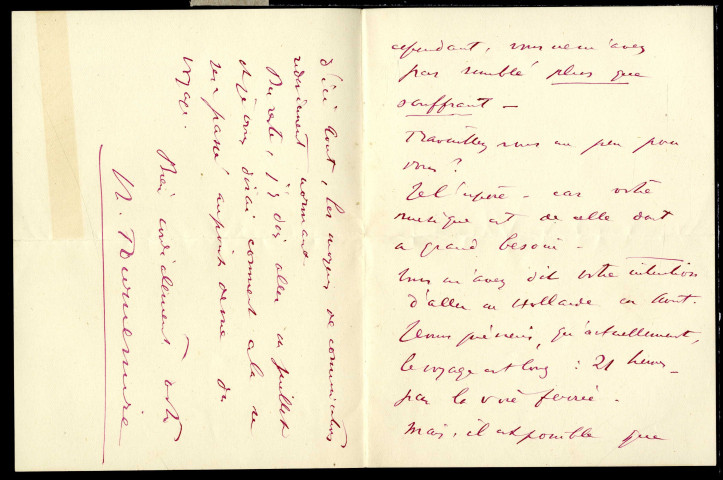 cependant, vous ne m'avez
pas semblé plus que
souffrant —
Travaillez vous un peu pour
vous ?
Je l'espère - car votre
musique est de celle dont
a grand besoin -
Vous m'avez dit votre intention
d'aller en Hollande en Août.
Je vous préviens, qu'actuellement,
le voyage est long : 21 heures
par la voie ferrée -
Mais, il est possible que
d'ici Août, les moyens de communications
redeviennent normaux -
Du reste, j'y dois aller en juillet
et je vous dirai comment cela se
sera passé au point de vue du
voyage. Bien cordialement votre
Ch. Tournemire